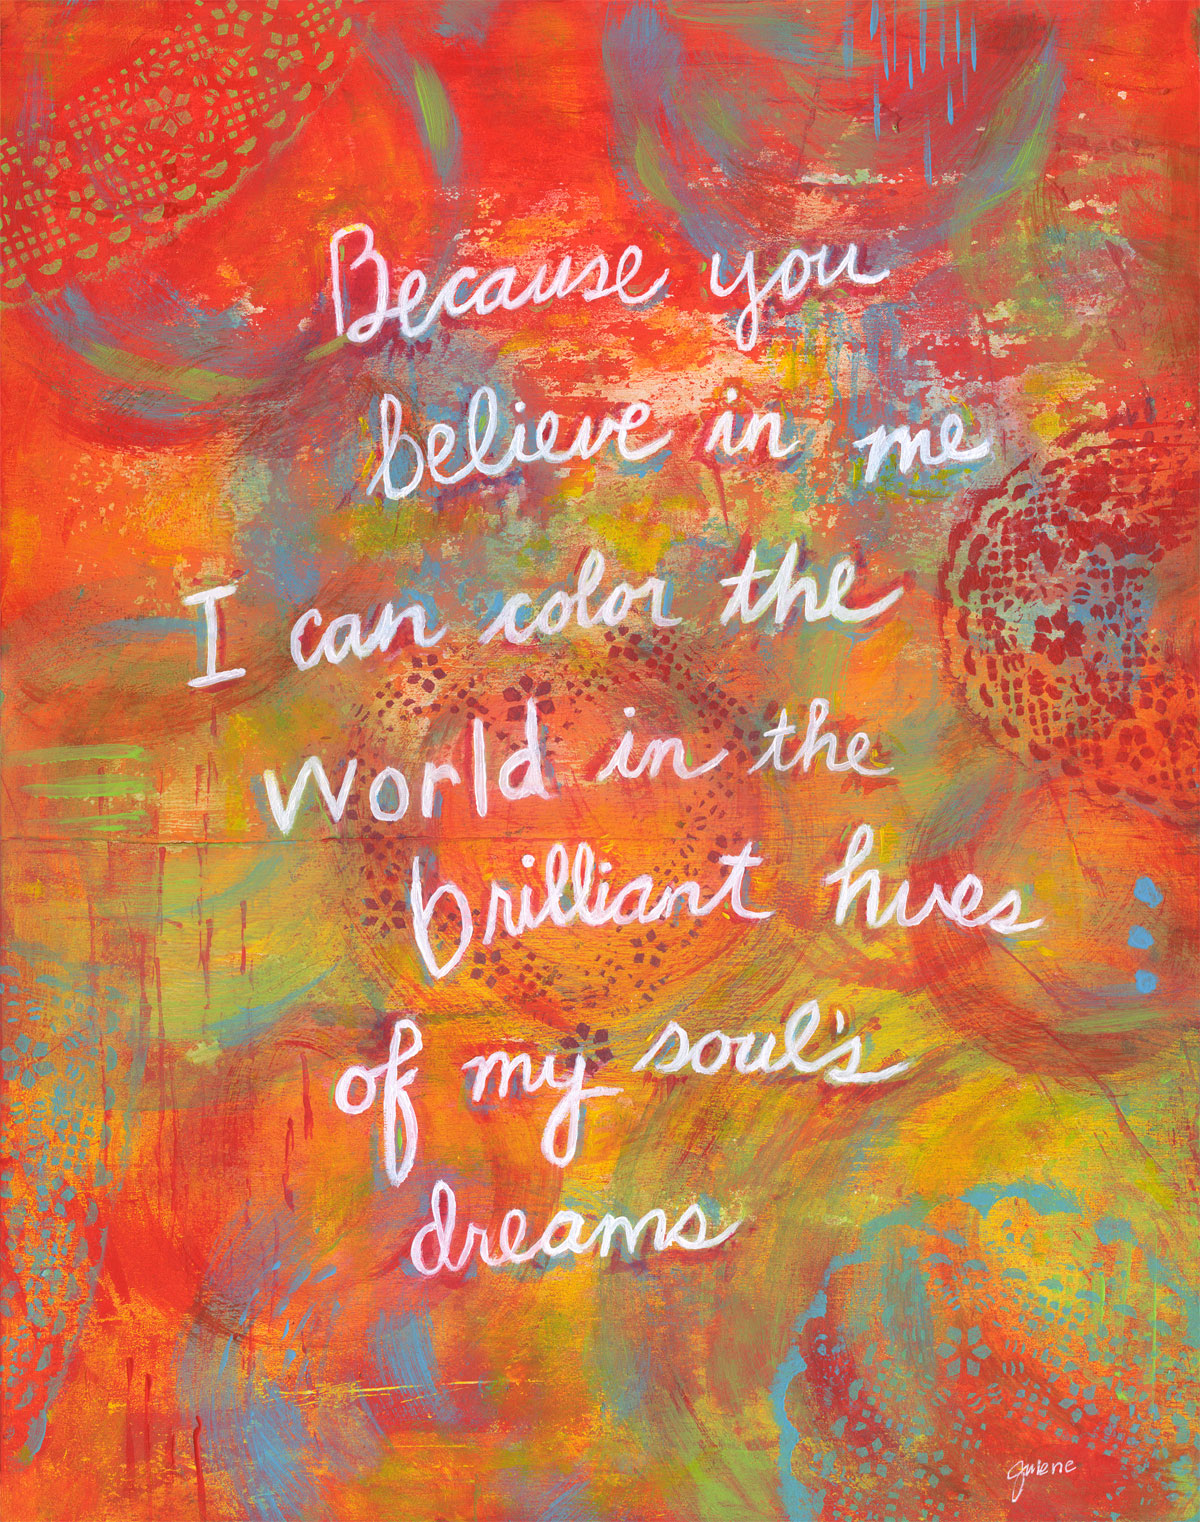 Because you
believe in me
I can color the
world in the
brilliant hues
of my soul's
dreams